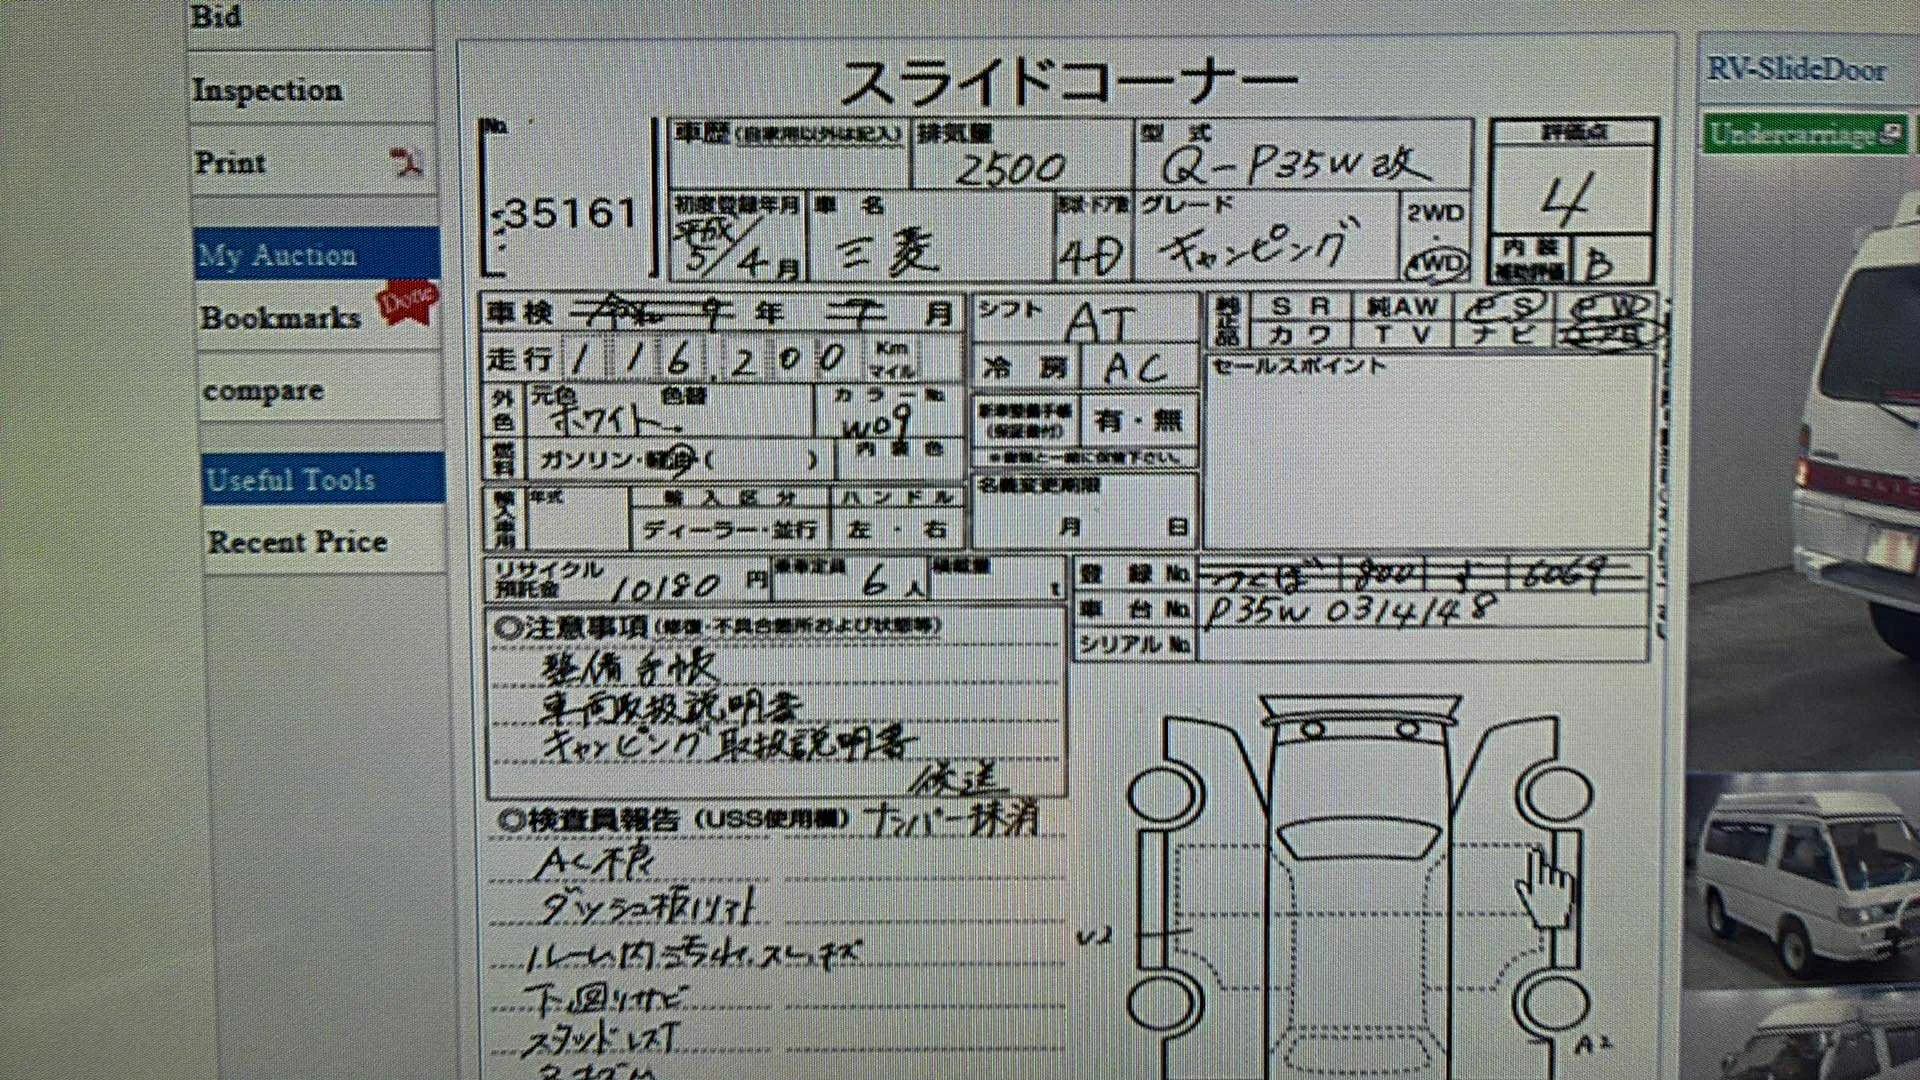 Bid
Inspection
Print
My Auction
Bookmarks
Done
compare
Useful Tools
Recent Price
スライドコーナー
No.
35161
車歴 (自家用以外は記入)
排気量
2500
型式
Q-P35W改
評価点
4
初度登録年月
平成
5/4月
車名
三菱
形状・ドア数
4D
グレード
キャンピング
2WD
・
4WD
内装
補助評価
B
車検 年 月
シフト
AT
純正品
SR
純AW
PS
PW
カワ
TV
ナビ
走行
116,200
Km
マイル
冷房
AC
セールスポイント
外色
元色
ホワイト
色替
カラーNo.
W09
新車整備手帳
(保証書付)
有・無
燃料
ガソリン・軽油・( )
内装色
※書類と一緒に保管下さい。
輸入車用
年式
輸入区分
ディーラー・並行
ハンドル
左・右
名義変更期限
月 日
リサイクル
預託金
10180 円
乗車定員
6人
積載量
t
登録No.
つくば 800 す 6069
車台No.
P35W 0314148
シリアルNo.
◎注意事項 (修復・不具合箇所および状態等)
整備手帳
車両取扱説明書
キャンピング取扱説明書
後送
◎検査員報告 (USS使用欄) ナンバー抹消
AC不良
ダッシュ板
ルーム内汚れ、
下回りサビ
スタッドレスT
U2
A2
RV-SlideDoor
Undercarriage